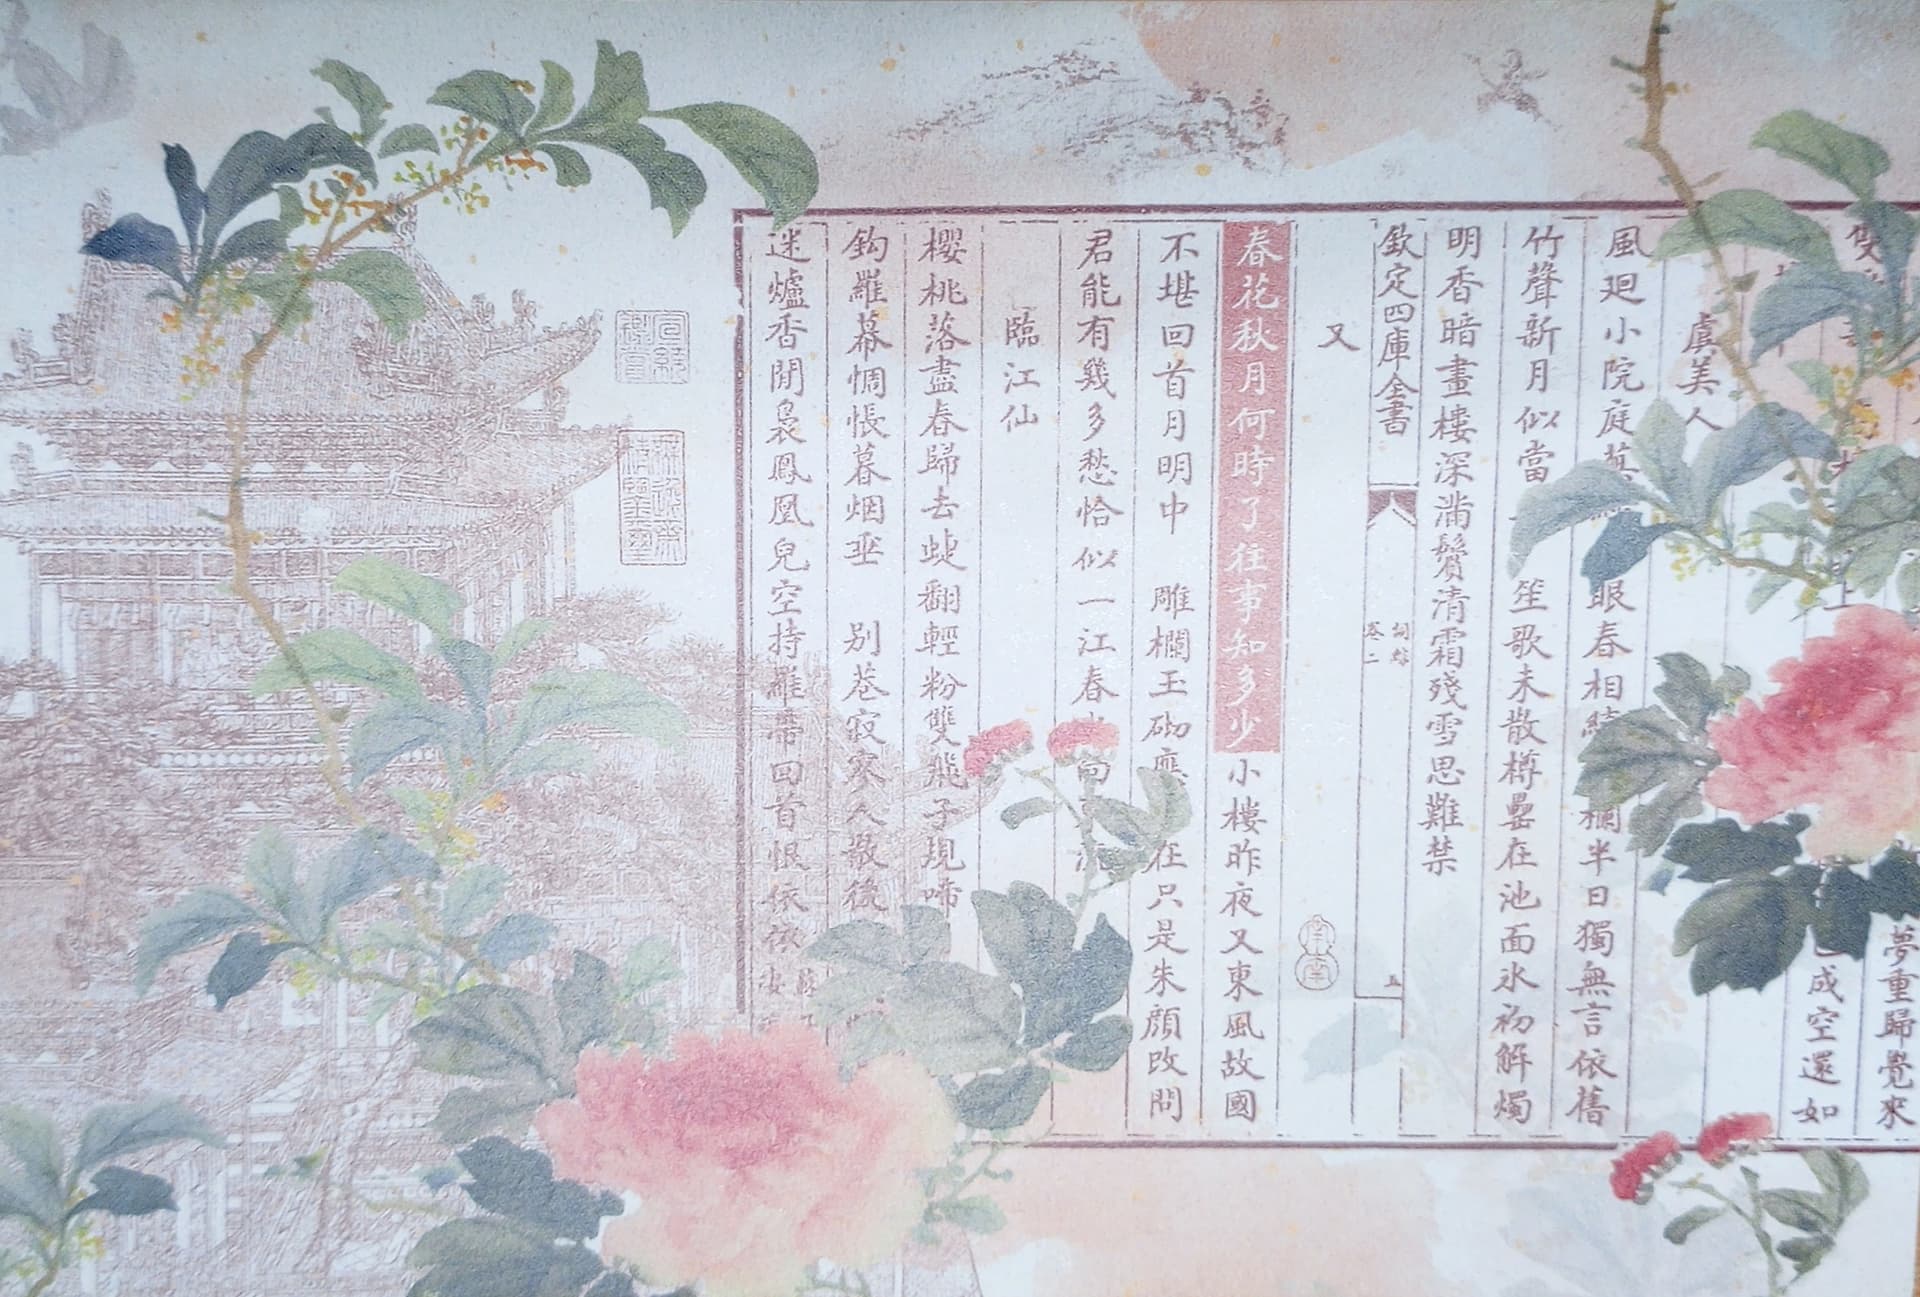 夢重歸覺來
成空還如
虞美人
風廻小院庭蕪眼春相續欄半日獨無言依舊
竹聲新月似當笙歌未散樽罍在池面氷初解燭
明香暗畫樓深滿鬢清霜殘雪思難禁
欽定四庫全書
詞綜
卷二
五
又
春花秋月何時了往事知多少小樓昨夜又東風故國
不堪回首月明中 雕欄玉砌應在只是朱顔改問
君能有幾多愁恰似一江春水向東流
臨江仙
櫻桃落盡春歸去蜨翻輕粉雙飛子規啼
鈎羅幕惆悵暮烟垂 别巷寂寥人散後
迷爐香閒裊鳳凰兒空持羅帶回首恨依依